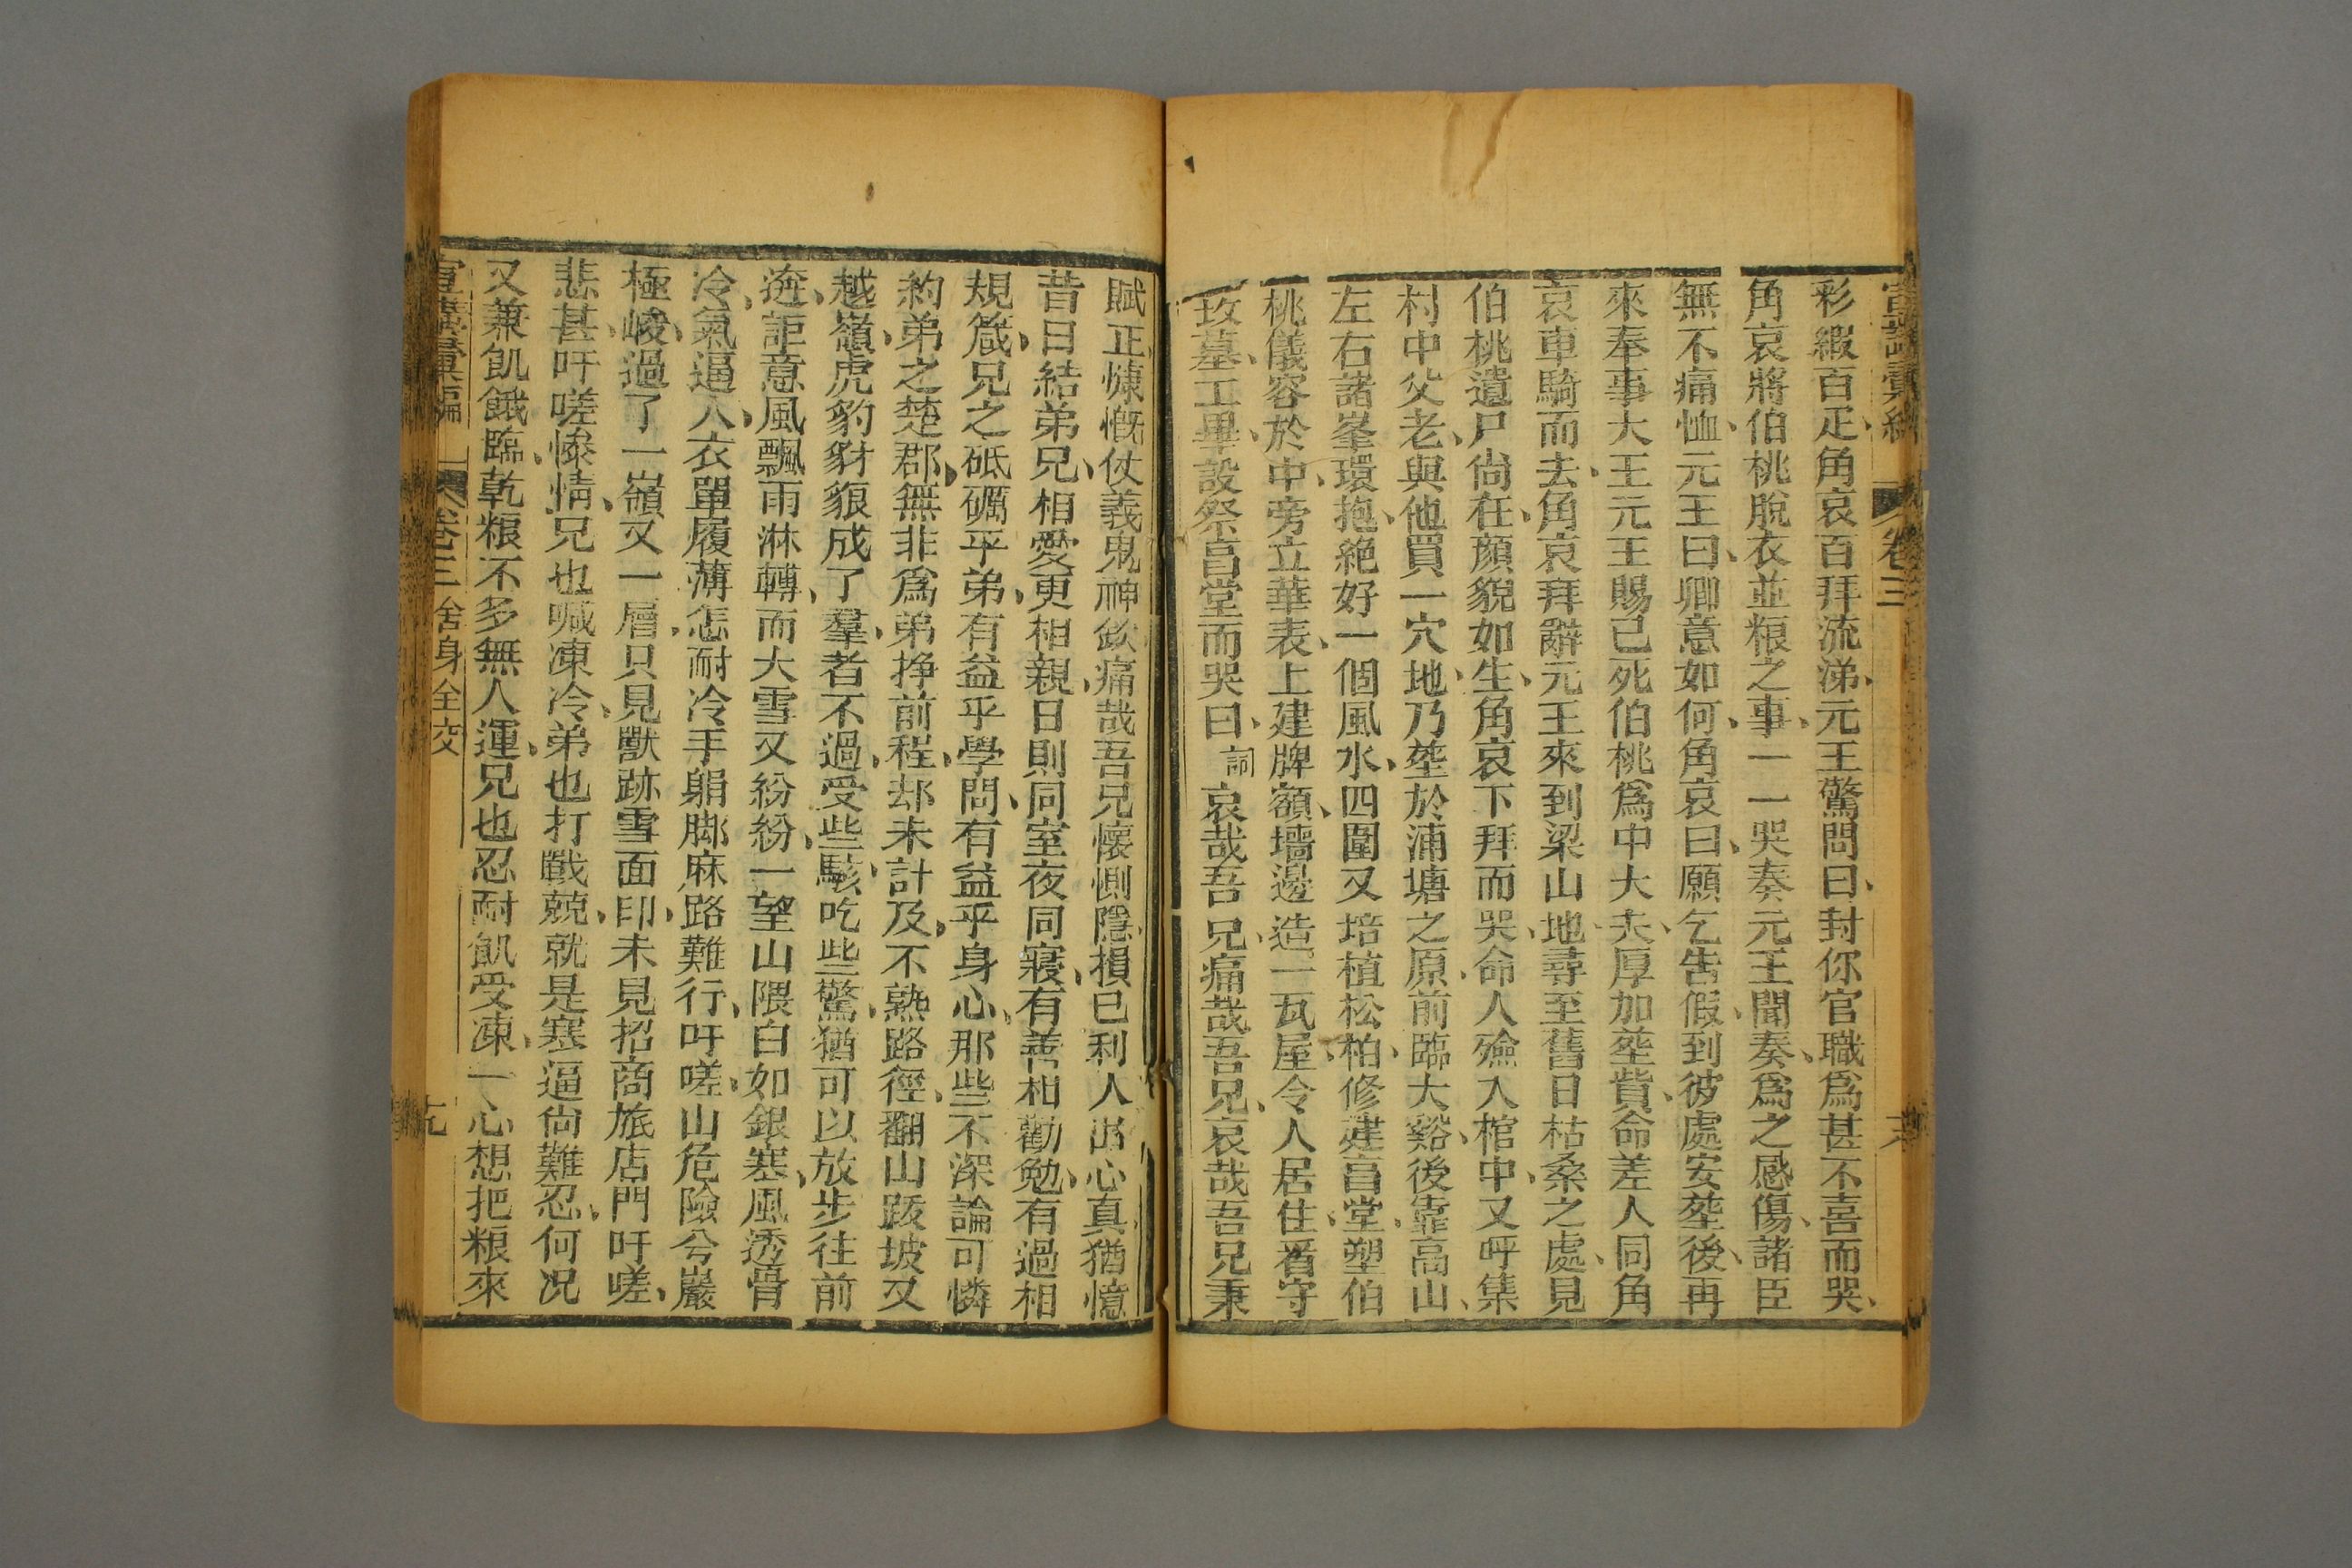 宣講彙編 卷三
彩緞百疋、角哀百拜流涕、元王驚問曰、封你官職爲甚不喜而哭、
角哀將伯桃脫衣並粮之事、一一哭奏元王聞奏、爲之感傷、諸臣
無不痛恤、元王曰、卿意如何、角哀曰、願乞告假、到彼處安塟後、再
來奉事大王元王賜已死伯桃爲中大夫、厚加塟貲、命差人同角
哀車騎而去、角哀拜辭元王來到梁山地尋至舊日枯桑之處、見
伯桃遺尸尙在、顏貌如生、角哀下拜而哭、命人殮入棺中、又呼集
村中父老、與他買一穴地、乃塟於浦塘之原、前臨大谿、後靠高山、
左右諸峯環抱、絕好一個風水、四圍又培植松柏、修建亯堂、塑伯
桃儀容於中、旁立華表、上建牌額、墻邊造一瓦屋、令人居住、看守
坟墓、工畢、設祭亯堂而哭曰、詞哀哉吾兄、痛哉吾兄、哀哉吾兄秉
賦正慷慨仗義鬼神欽痛哉吾兄懷惻隱、損已利人出心真猶憶
昔日結弟兄、相愛更相親、日則同室夜同寢、有善相勸勉、有過相
規箴、兄之砥礪乎弟、有益乎學問、有益乎身心、那些不深論可憐
約弟之楚郡、無非爲弟挣前程、却未計及、不熟路徑、翻山跋坡又
越嶺、虎豹豺狼成了羣、者不過、受些駭、吃些驚、猶可以放步往前
遊、詎意風飄雨淋轉、而大雪又紛紛、一望山隈白如銀塞、風透骨
冷、氣逼人、衣單履薄怎耐冷手䠷脚麻路難行、吁嗟、山危險兮巖
極峻、過了一嶺又一層、只見獸跡雪面印、未見招商旅店門吁嗟、
悲甚、吁嗟慘情、兄也喊凍冷、弟也打戰兢、就是寒逼尙難忍、何况
又兼飢餓臨、乾粮不多無人運、兄也忍耐飢受凍、一心想把粮來
宣講彙編 卷三 舍身全交